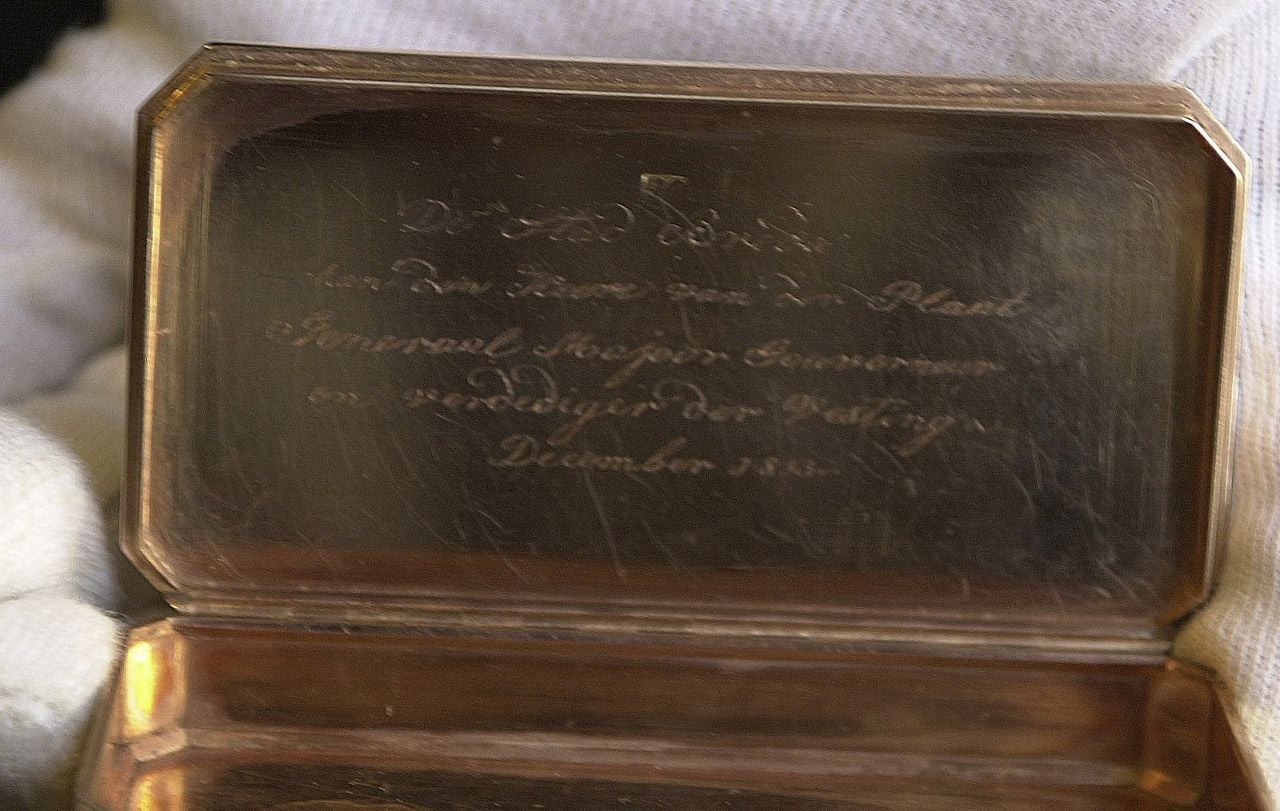 De Stad Breda
aan den Heere van der Plaat
Generaal Majoor Gouverneur
en verdediger der Vesting
December 1813